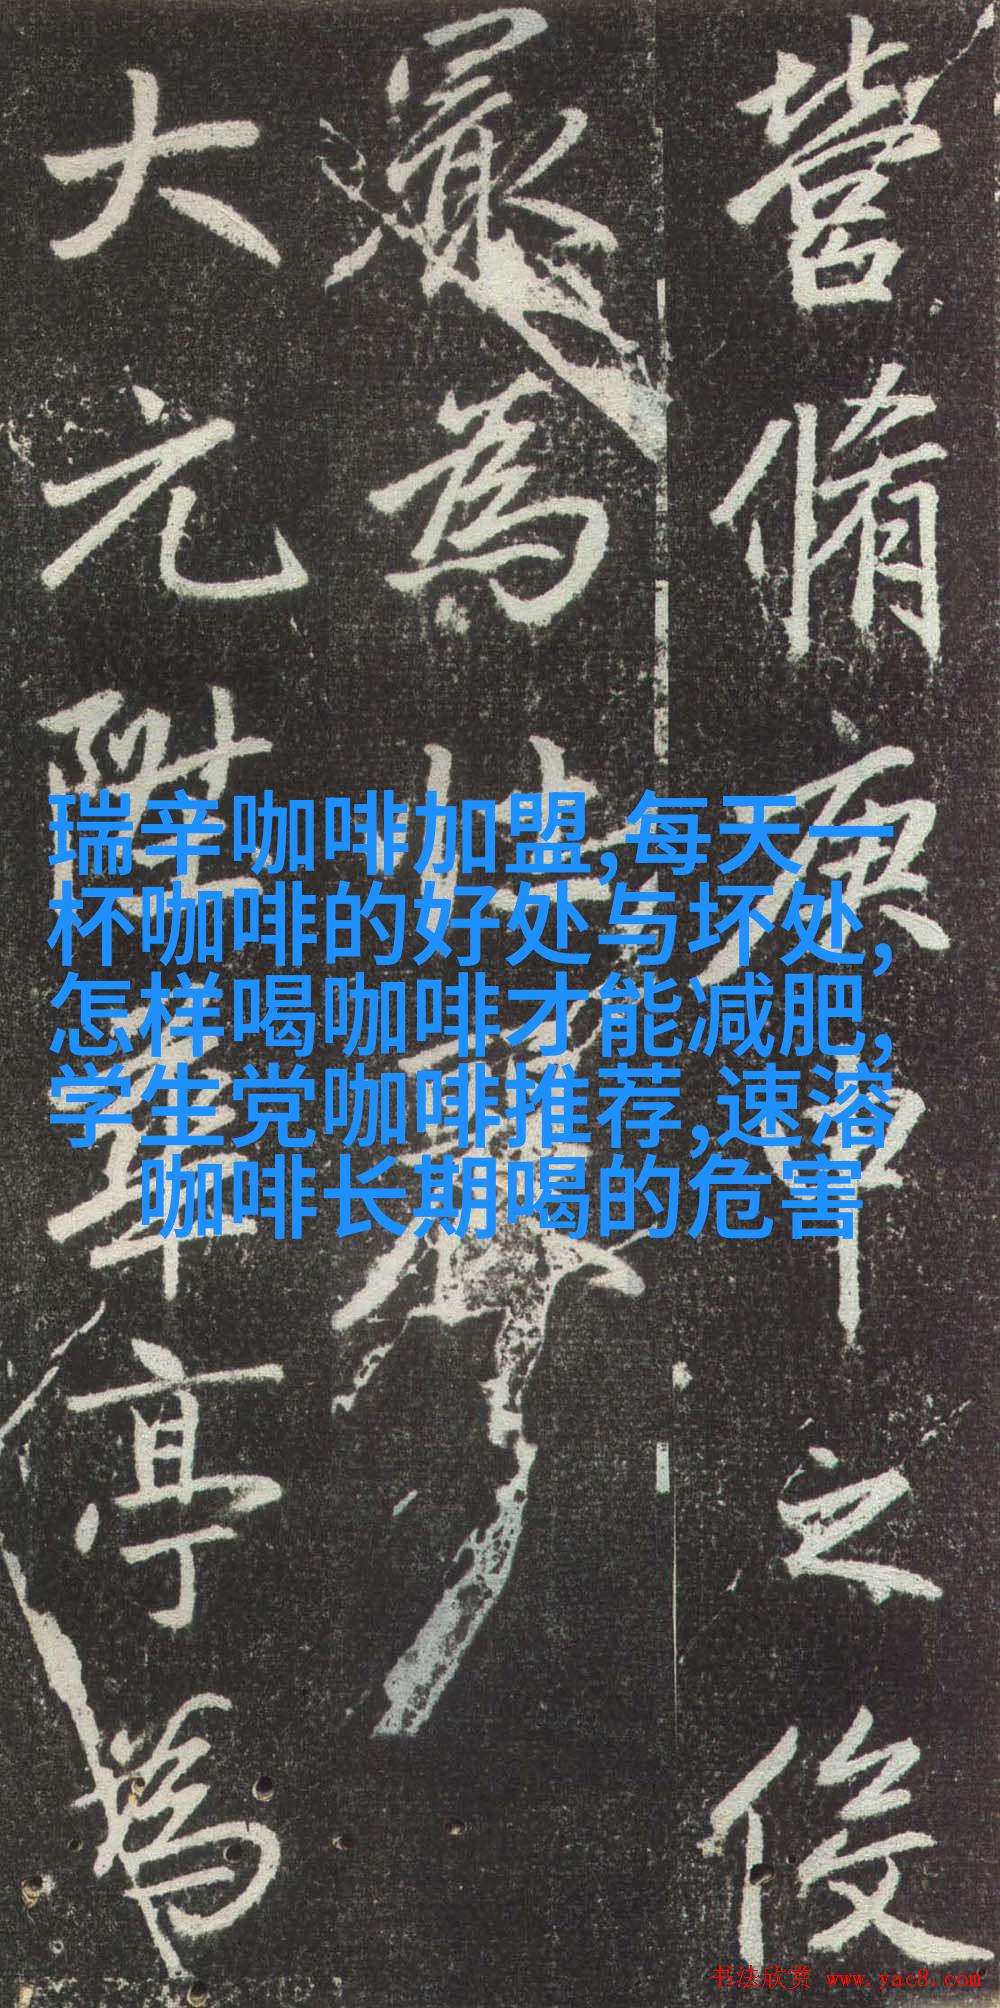 營脩庚申之
最為壯麗
大元陞華亭為
瑞辛咖啡加盟,每天一
杯咖啡的好处与坏处,
怎样喝咖啡才能减肥,
学生党咖啡推荐,速溶
咖啡长期喝的危害
书法欣赏 www.yac8.com